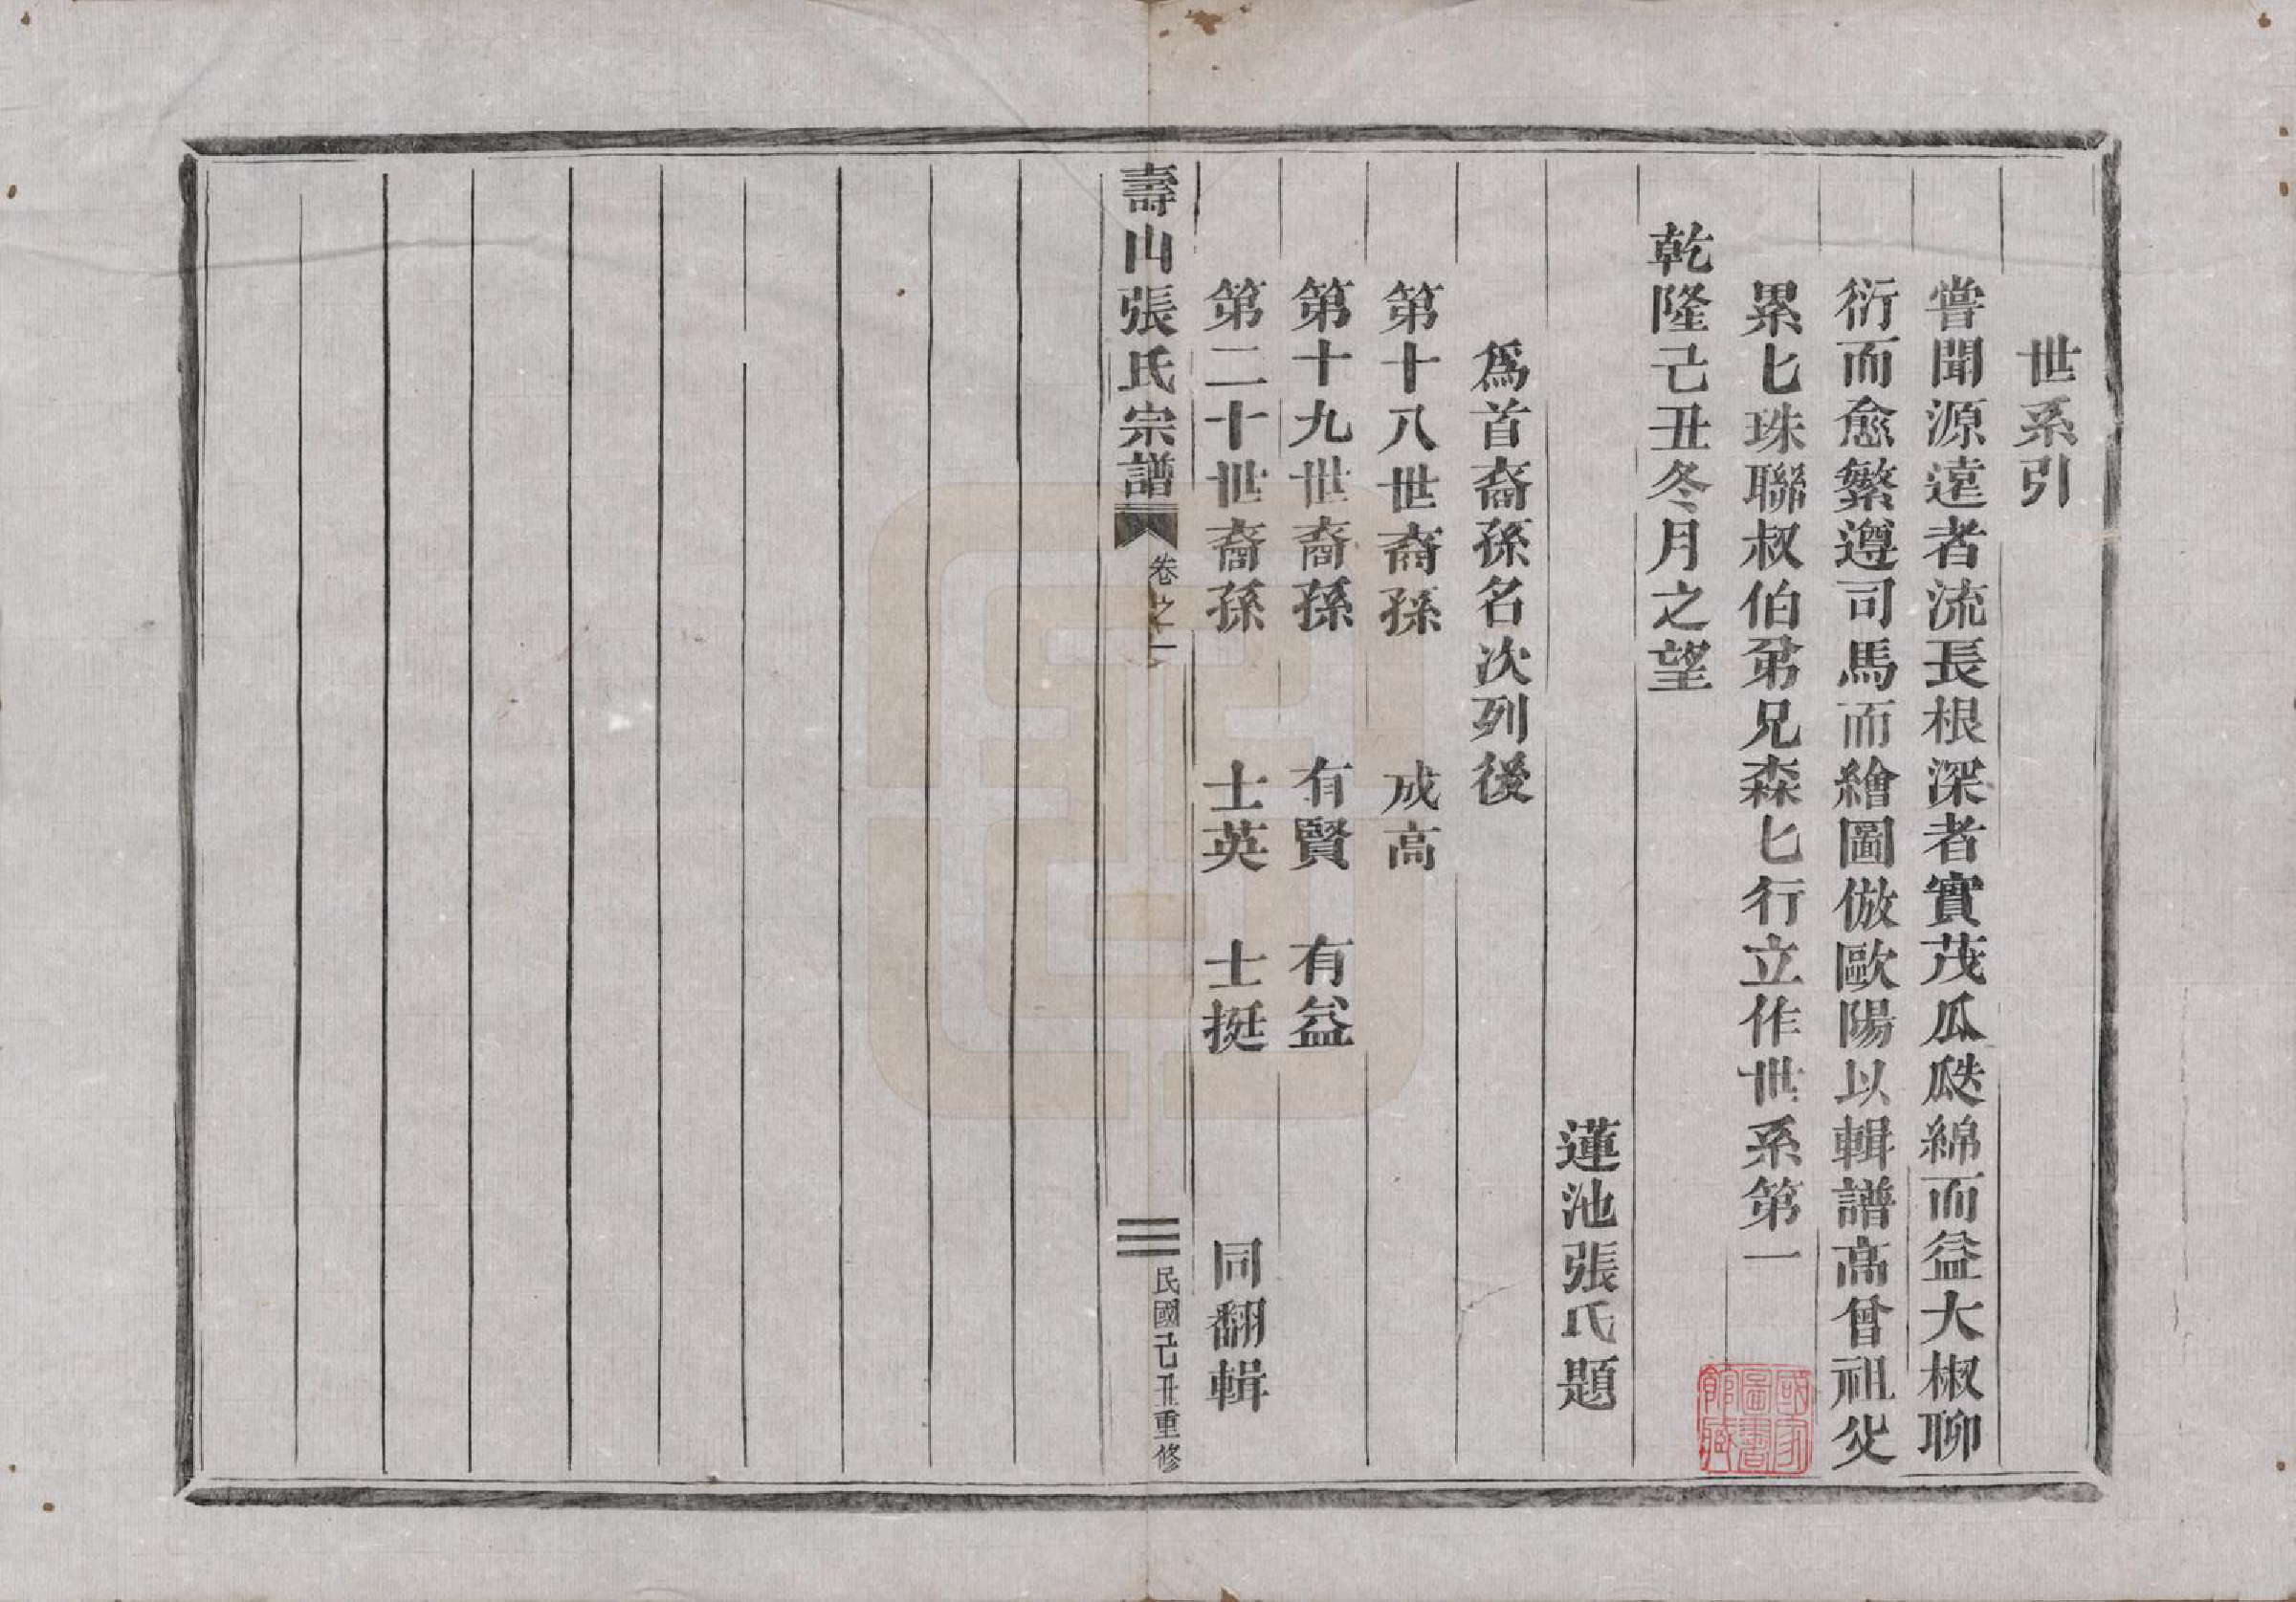 世系引
嘗聞源遠者流長根深者實茂瓜瓞綿而益大椒聊
衍而愈繁遵司馬而繪圖倣歐陽以輯譜高曾祖父
累匕珠聯叔伯弟兄森匕行立作世系第一
乾隆己丑冬月之望
蓮池張氏題
爲首裔孫名次列後
第十八世裔孫　成高
第十九世裔孫　有賢　有益
第二十世裔孫　士英　士挺　同翻輯
壽山張氏宗譜　卷之一　三　民國己丑重修
國家圖書館藏